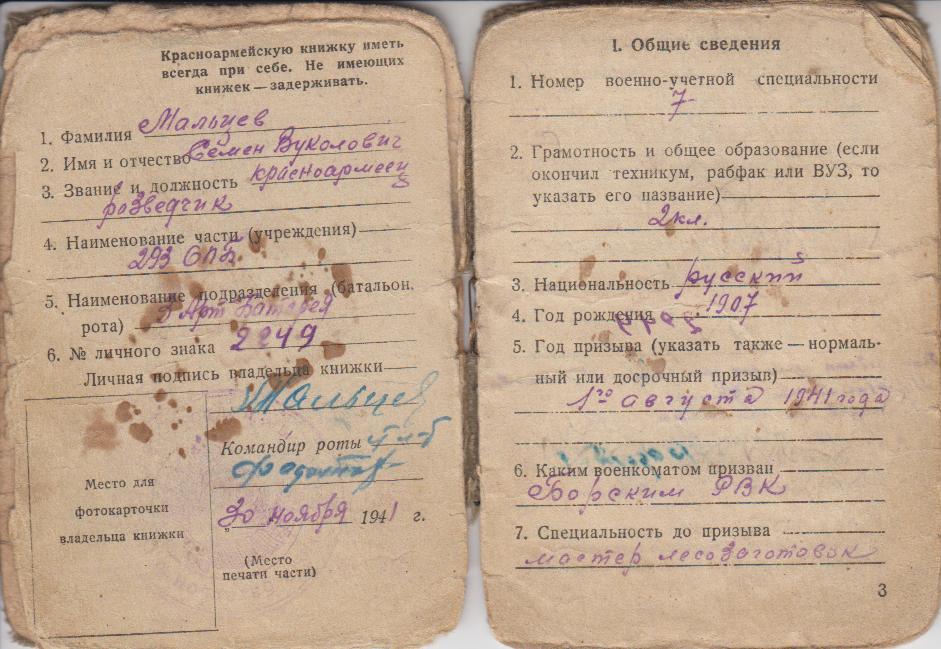 Красноармейскую книжку иметь
всегда при себе. Не имеющих
книжек — задерживать.
1. Фамилия Мальцев
2. Имя и отчество Семен Вуколович
3. Звание и должность красноармеец
розведчик
4. Наименование части (учреждения)
293 ОПБ
5. Наименование подразделения (батальон,
рота) Арт Батарея
6. № личного знака 2249
Личная подпись владельца книжки
Мальцев
Командир роты
30 ноября 1941 г.
Место для
фотокарточки
владельца книжки
(Место
печати части)
I. Общие сведения
1. Номер военно-учетной специальности
7
2. Грамотность и общее образование (если
окончил техникум, рабфак или ВУЗ, то
указать его название)
2 кл.
3. Национальность русский
4. Год рождения 1907
5. Год призыва (указать также — нормаль-
ный или досрочный призыв)
1го августа 1941 года
6. Каким военкоматом призван
Борским РВК
7. Специальность до призыва
мастер лесозаготовок
3